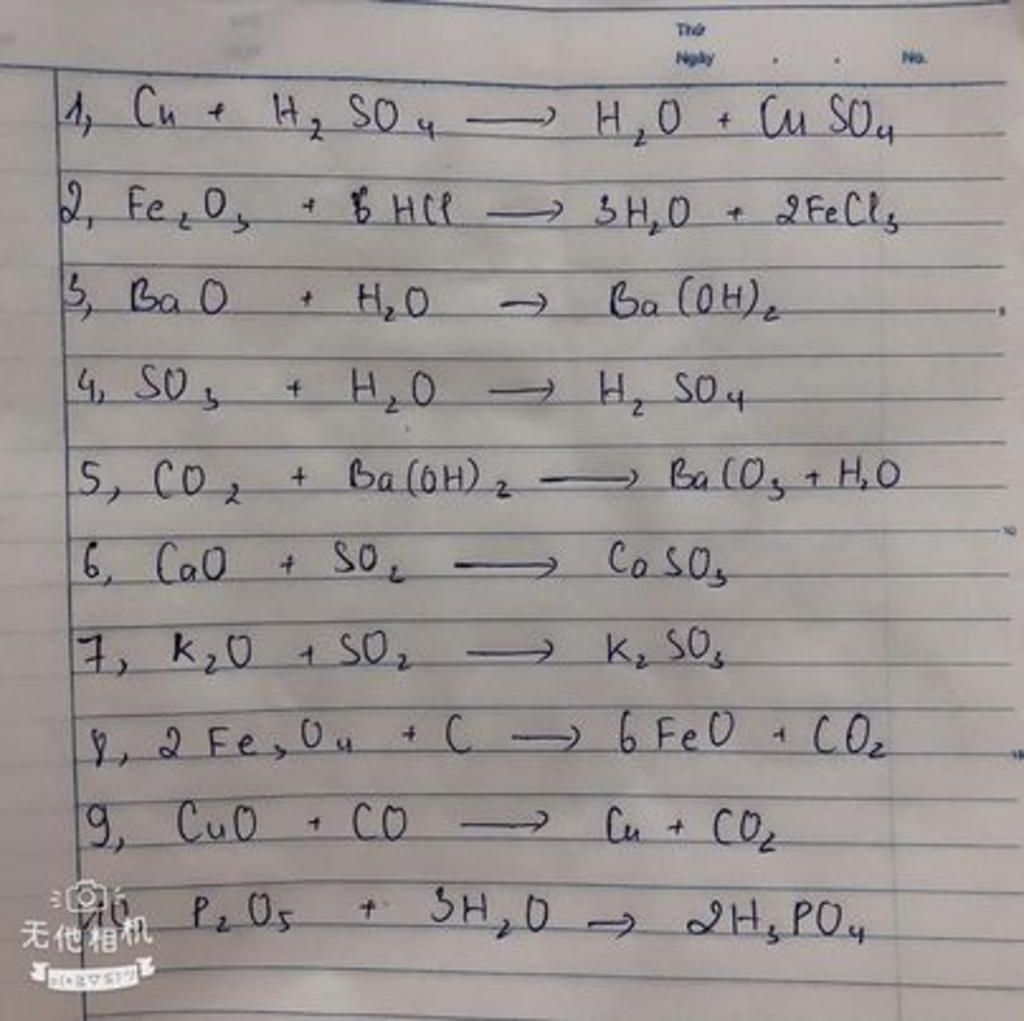 Thứ
Ngày . . No.
1, Cu + H₂SO₄ ⟶ H₂O + CuSO₄
2, Fe₂O₃ + 6HCl ⟶ 3H₂O + 2FeCl₃
3, BaO + H₂O → Ba(OH)₂
4, SO₃ + H₂O ⟶ H₂SO₄
5, CO₂ + Ba(OH)₂ ⟶ BaCO₃ + H₂O
6, CaO + SO₂ ⟶ CaSO₃
7, K₂O + SO₂ ⟶ K₂SO₃
8, 2Fe₃O₄ + C ⟶ 6FeO + CO₂
9, CuO + CO ⟶ Cu + CO₂
10, P₂O₅ + 3H₂O → 2H₃PO₄
无他相机